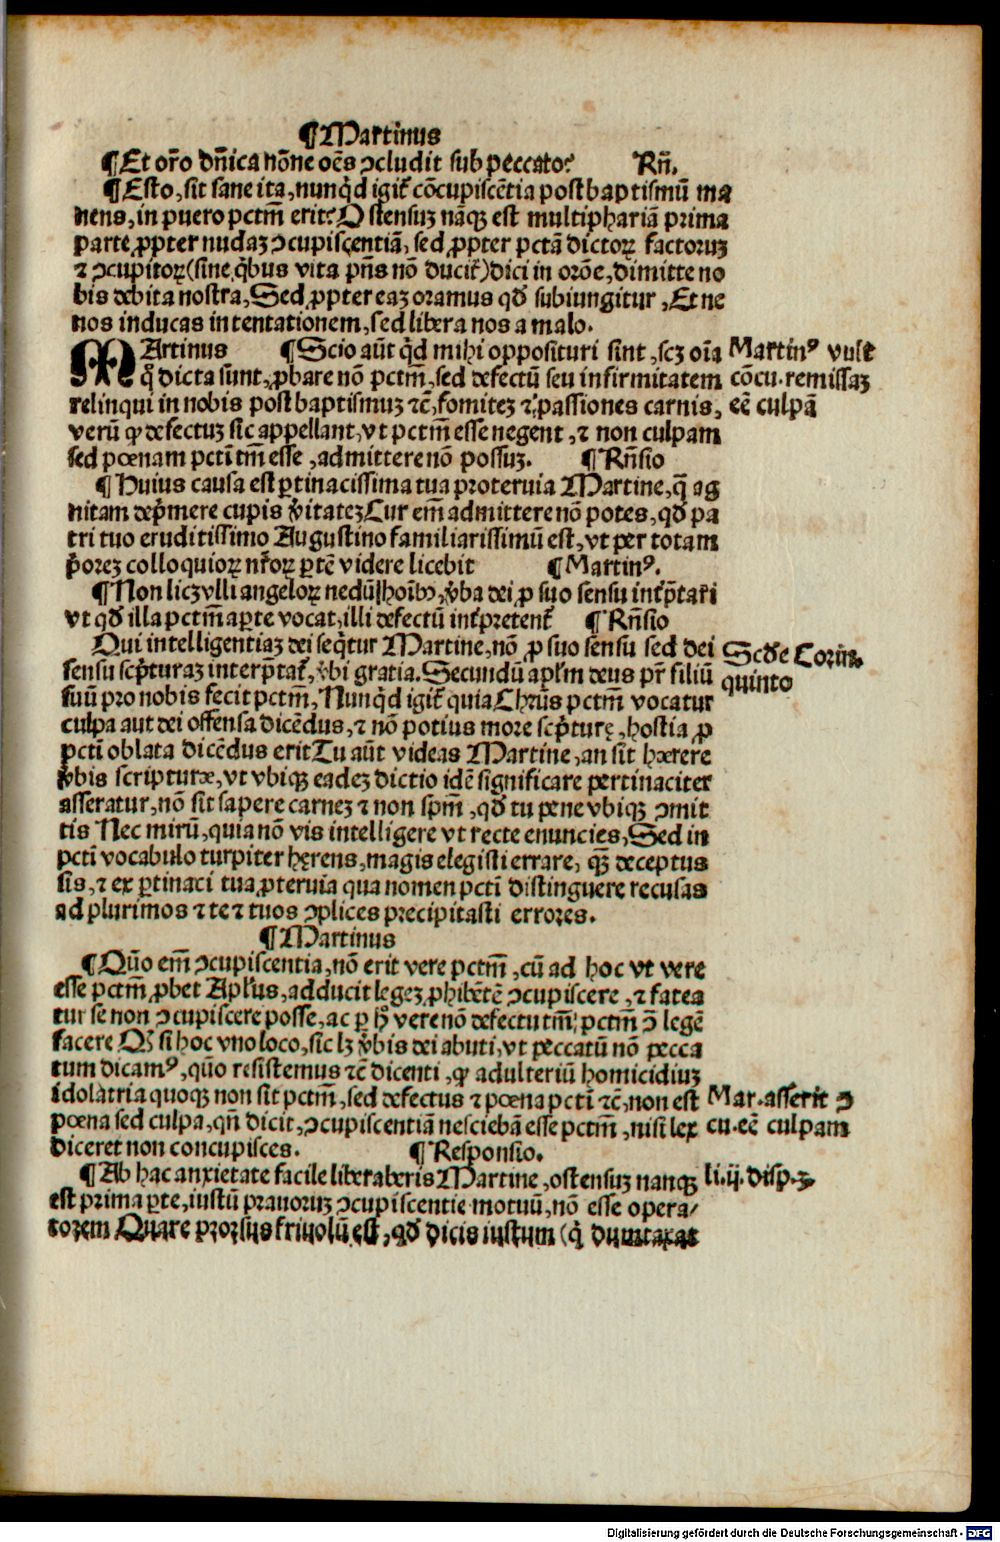 ¶Martinus
¶Et or̃o dñica nõne oẽs ɔcludit sub peccato? Rñ.
¶Esto, sit sane ita, nunq̃d igiť cõcupiscẽtia post baptismũ ma
nens, in puero pctm̃ erit? Ostensuz nãqꝫ est multiphariã prima
parte, ꝓpter nudaz ɔcupiscentiã, sed ꝓpter pctã dictoꝝ factoruz
⁊ ɔcupitoꝝ (sine q̃bus vita pñs nõ duciť) dici in orõe, dimitte no
bis debita nostra, Sed ꝓpter eaz oramus qđ subiungitur, Et ne
nos inducas in tentationem, sed libera nos a malo.
MArtinus ¶Scio aũt q̃d mihi opposituri sint, scꝫ oĩa
q̃ dicta sunt, ꝓbare nõ pctm̃, sed defectũ seu infirmitatem
relinqui in nobis post baptismuz ⁊c̃, fomitez ⁊ passiones carnis,
verũ ꝙ defectuz sic appellant, vt pctm̃ esse negent, ⁊ non culpam
sed pœnam pctĩ tm̃ esse, admittere nõ possuz. ¶Rñsio
Martinꝰ vult
cõcu. remissaz
eẽ culpã
¶Huius causa est ꝑtinacissima tua proteruia Martine, q̃ ag
nitam dep̃mere cupis v̓itatez Cur em̃ admittere nõ potes, qđ pa
tri tuo eruditissimo Augustino familiarissimũ est, vt per totam
p̓orez colloquioꝝ nr̃oꝝ ꝑtẽ videre licebit ¶Martinꝰ.
¶Non licꝫ vlli angeloꝝ nedũ hoĩbꝰ, v̓ba dei, ꝓ suo sensu inťp̃tari
vt qđ illa pctm̃ aꝑte vocat, illi defectũ inťpretenť ¶Rñsio
Qui intelligentiaz dei seq̃tur Martine, nõ ꝓ suo sensu sed dei
sensu scp̃turaz interp̃tať, v̓bi gratia. Secundũ apľm deus pr̃ filiũ
suũ pro nobis fecit pctm̃, Nunq̃d igiť quia Chr̃us pctm̃ vocatur
culpa aut dei offensa dicẽdus, ⁊ nõ potius more scp̃turę, hostia ꝓ
pctĩ oblata dicẽdus erit Tu aũt videas Martine, an sit hærere
v̓bis scripturæ, vt vbiqꝫ eadez dictio idẽ significare pertinaciter
asseratur, nõ sit sapere carnez ⁊ non spm̃, qđ tu pene vbiqꝫ ɔmit
tis Nec mirũ, quia nõ vis intelligere vt recte enuncies, Sed in
pctĩ vocabulo turpiter hęrens, magis elegisti errare, qꝫ̃ deceptus
sis, ⁊ ex ꝑtinaci tua ꝓteruia qua nomen pctĩ distinguere recusas
ad plurimos ⁊ te ⁊ tuos ɔplices precipitasti errores.
Scďe Corũn.
quinto
¶Martinus
¶Quõ em̃ ɔcupiscentia, nõ erit vere pctm̃, cũ ad hoc vt vere
esse pctm̃ ꝓbet Apľus, adducit legez ꝓhibẽtẽ ɔcupiscere, ⁊ fatea
tur se non ɔcupiscere posse, ac ꝑ hͦ vere nõ defectu tm̃ pctm̃ ɔ̃ legẽ
facere Qđ si hoc vno loco, sic lꝫ v̓bis dei abuti, vt peccatũ nõ pecca
tum dicamꝰ, quõ resistemus ⁊c̃ dicenti, ꝙ adulteriũ homicidiuz
idolatria quoqꝫ non sit pctm̃, sed defectus ⁊ pœna pctĩ ⁊c̃, non est
pœna sed culpa, qñ dicit, ɔcupiscentiã nesciebã esse pctm̃, nisi lex
diceret non concupisces. ¶Responsio.
Mar. asserit ɔ
cu. eẽ culpam
¶Ab hac anxietate facile liberaberis Martine, ostensuz nanqꝫ
est prima ꝑte, iustũ prauoruz ɔcupiscentie motuũ, nõ esse opera/
torem Quare prorsus friuolũ est, qđ dicis iustum (q̓ duntaxat
li. ij. disp. ꝫ
Digitalisierung gefördert durch die Deutsche Forschungsgemeinschaft - DFG